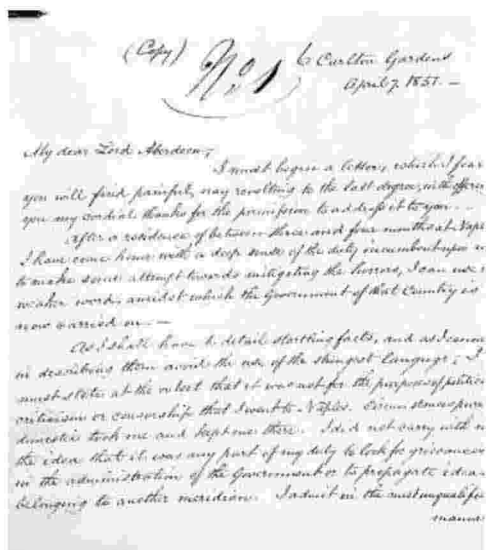 (Copy)
No 1
6 Carlton Gardens
April 7. 1851. —
My dear Lord Aberdeen,
I must begin a letter, which I fear
you will find painful, nay revolting to the last degree, with offering
you my cordial thanks for the permission to address it to you. —
After a residence of between three and four months at Naples
I have come home with a deep sense of the duty incumbent upon me
to make some attempt towards mitigating the horrors, I can use no
weaker word, amidst which the Government of that Country is
now carried on. —
As I shall have to detail startling facts, and as I cannot
in describing them avoid the use of the strongest language, I
must state at the outset that it was not for the purpose of political
criticism or censorship that I went to Naples. Circumstances purely
domestic took me and kept me there. I did not carry with me
the idea that it was any part of my duty to look for grievances
in the administration of the Government or to propagate ideas
belonging to another meridian. I admit in the most unqualified
manner